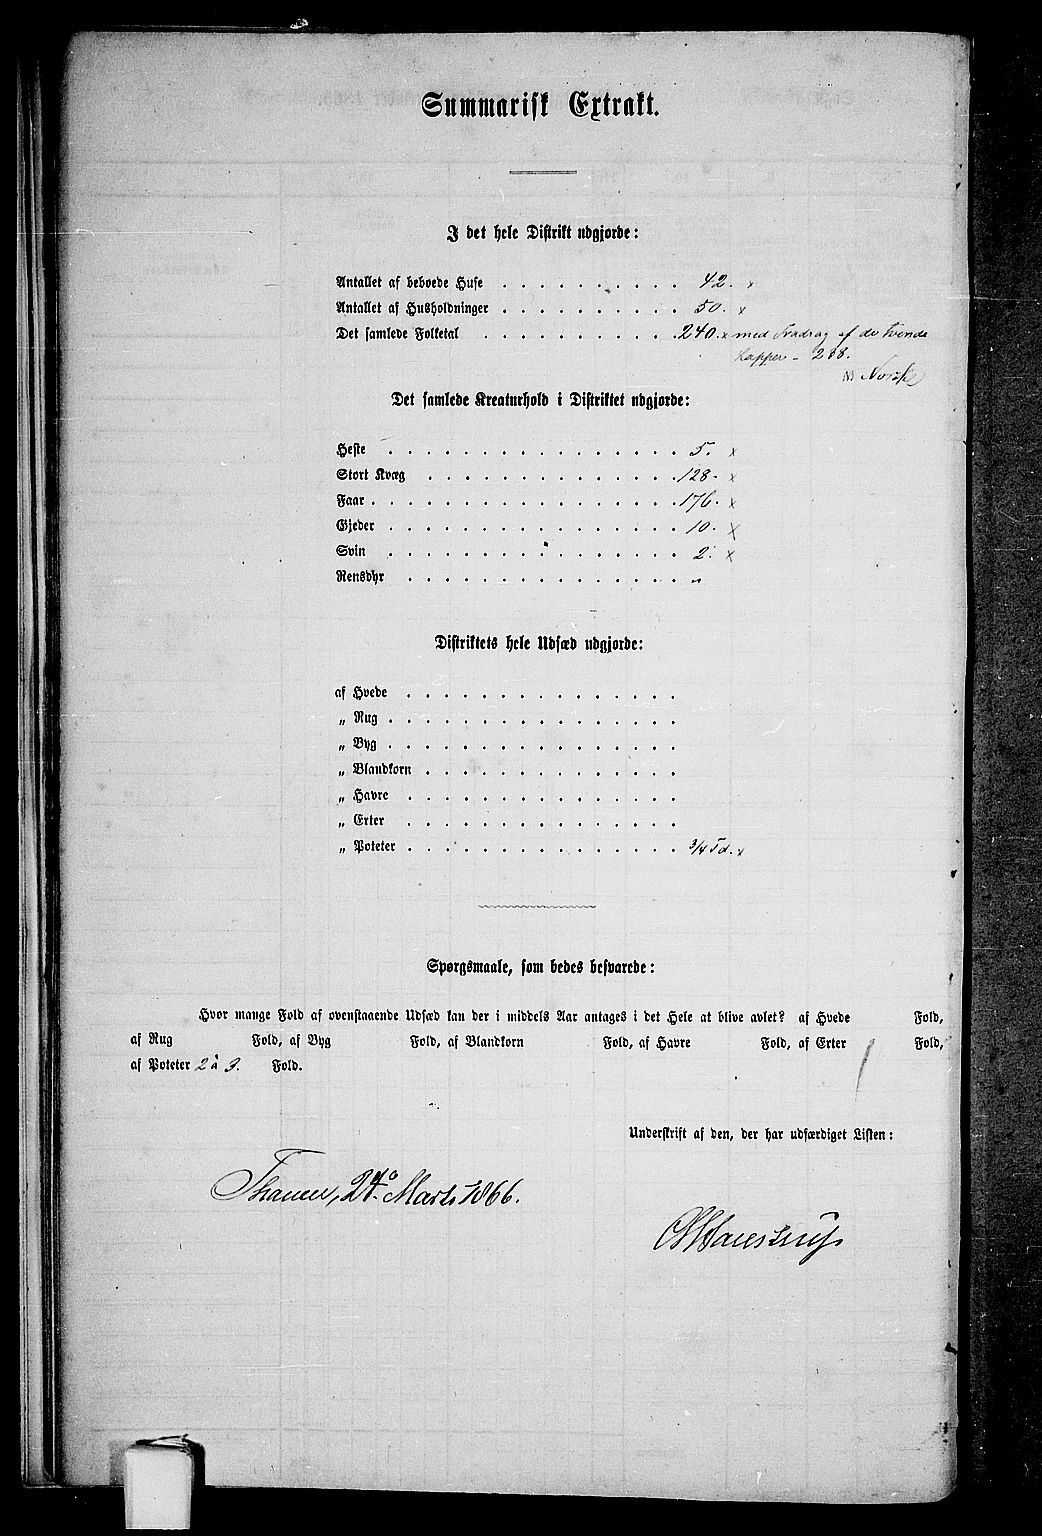 Summarisk Extrakt.
I det hele Distrikt udgjorde:
Antallet af beboede Huse . . . . . . . . . . 42. x
Antallet af Husholdninger . . . . . . . . . . 50. x
Det samlede Folketal . . . . . . . . . . . 240. x med Fradrag af de tvende
Lapper – 238.
Norske
Det samlede Kreaturhold i Distriktet udgjorde:
Heste . . . . . . . . . . . . . . . . 5. x
Stort Kvæg . . . . . . . . . . . . . . 128. x
Faar . . . . . . . . . . . . . . . . . 176. x
Gjeder . . . . . . . . . . . . . . . . 10. x
Svin . . . . . . . . . . . . . . . . 2. x
Rensdyr . . . . . . . . . . . . . . . "
Distriktets hele Udsæd udgjorde:
af Hvede . . . . . . . . . . . . . . .
„ Rug . . . . . . . . . . . . . . . .
„ Byg . . . . . . . . . . . . . . . .
„ Blandkorn . . . . . . . . . . . . . .
„ Havre . . . . . . . . . . . . . . .
„ Erter . . . . . . . . . . . . . . .
„ Poteter . . . . . . . . . . . . . . . 3/4 Td. x
Spørgsmaale, som bedes besvarede:
Hvor mange Fold af ovenstaaende Udsæd kan der i middels Aar antages i det Hele at blive avlet? af Hvede Fold,
af Rug Fold, af Byg Fold, af Blandkorn Fold, af Havre Fold, af Erter Fold,
af Poteter 2 à 3. Fold.
Underskrift af den, der har udfærdiget Listen:
24de Marts 1866.